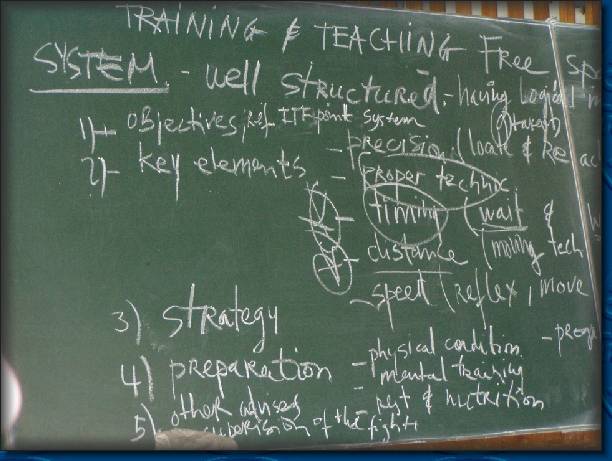 TRAINING & TEACHING Free
SYSTEM. - well structured - having
1)- objectives, ref. ITF point system
- precision
2)- key elements - proper technic
- timing (wait &
- distance (moving tech
- speed (reflex, move
3) strategy
4) preparation - physical condition
- mental training
- rest & nutrition
5) other advises
supervision of the fights